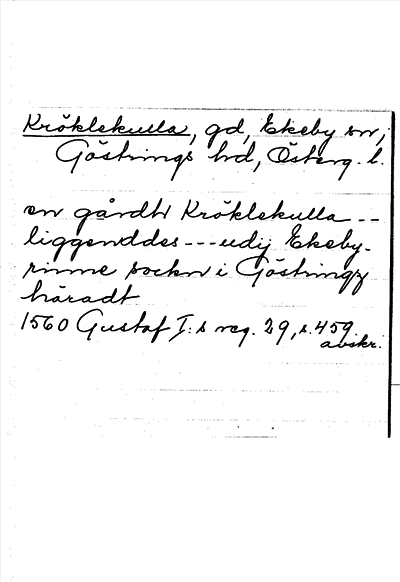 Kröklekulla, gd, Ekeby sn,
Göstrings hd, Österg. l.
en gårdh Kröklekulla --
liggenddes --- udij Ekeby-
rinne sockn i Göstringz
häradt
1560 Gustaf I:s reg. 29, s. 459
avskr.